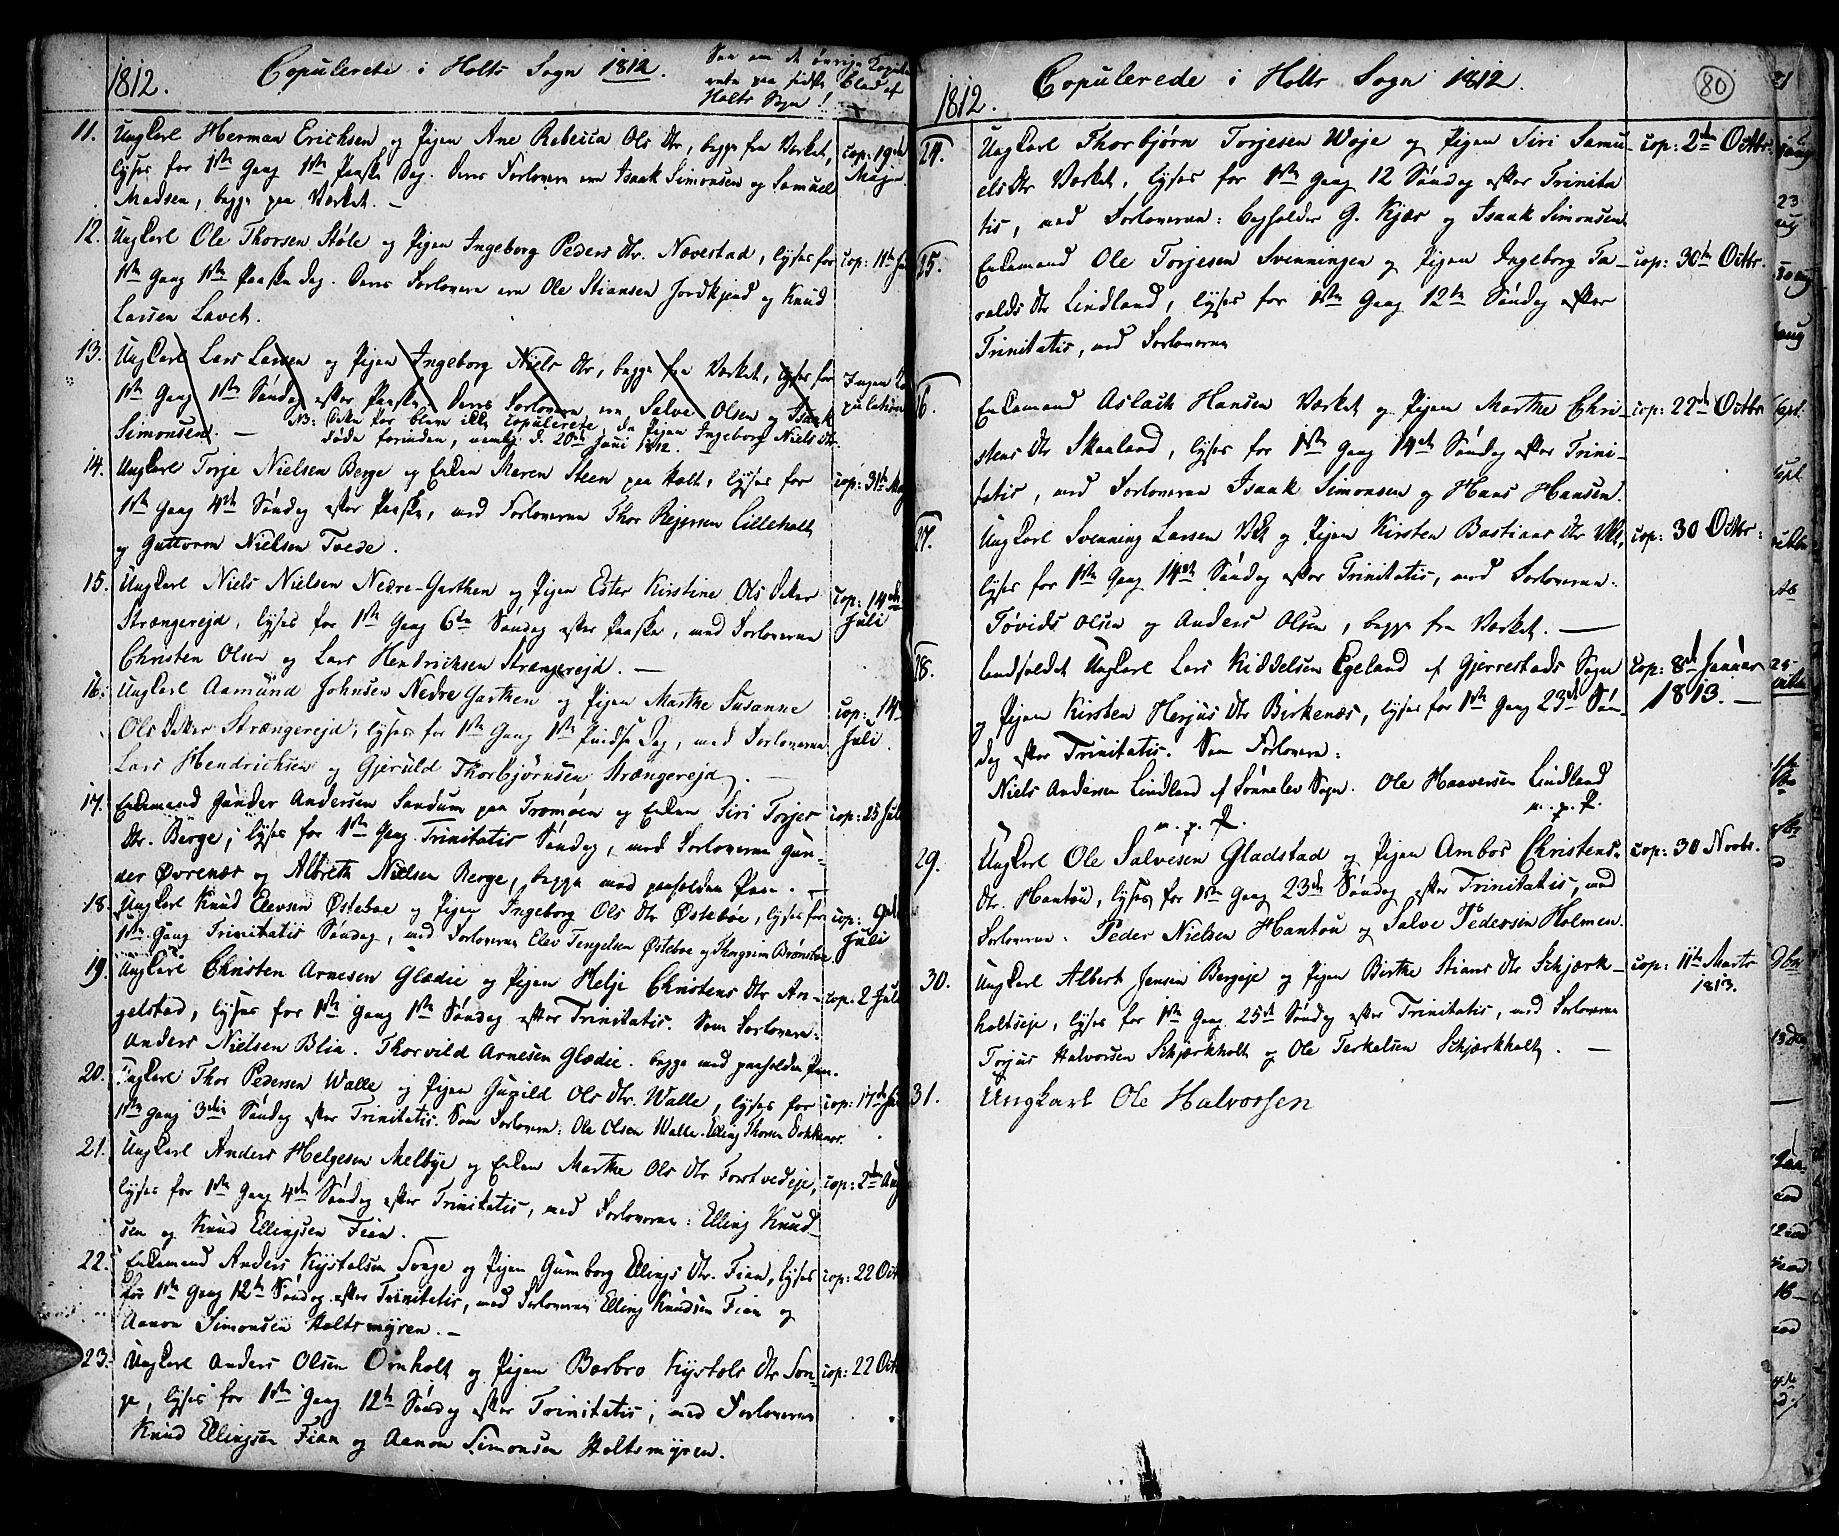 1812. Copulerete i Holts Sogn 1812.
See om de øvrige Copule
rede paa sidste Blad af
Holts Sogn!
11. Ungkarl Herman Erichsen og Pigen Ane Rebecca Ols Dtr, begge fra Værket, cop: 19de
lyses for 1ste Gang 1ste Paaske Dag. Deres Forlovere ere Isaak Simonsen og Samuel Maji.
Madsen, begge paa Værket. —
12. Ungkarl Ole Thorsen Støle og Pigen Ingeborg Peders Dtr. Nævestad, lyses for cop: 11te
1ste Gang 1ste Paaske dag. Deres Forlovere ere Ole Stiansen Jordkjend og Knud
Larsen Lavet.
13. Ungkarl Lars Larsen og Pigen Ingeborg Niels Dtr, begge fra Værket, lyses for Ingen Co
1ste Gang 1ste Søndag efter Paaske. Deres Forlovere ere Salve Olsen og Isaak pulation
Simonsen. — NB: Disse Par bleve ikke copulerede, da Pigen Ingeborg Niels Dtr.
døde forinden, nemlig d. 20de Juni 1812.
14. Ungkarl Torje Nielsen Berge og Enken Maren Steen paa Holt, lyses for cop: 31te Maj
1ste Gang 4de Søndag efter Paaske, med Forloverne Thor Rejersen Lilleholt
og Guttorm Nielsen Tvede.
15. Ungkarl Niels Nielsen Nedre-Garthen og Pigen Ester Kirstine Ols Datter cop: 14de
Strængerejd, lyses for 1ste Gang 6te Søndag efter Paaske, med Forloverne Juli
Christen Olsen og Lars Hendrichsen Strængerejd. —
16. Ungkarl Aamund Johnsen Nedre Garthen og Pigen Marthe Susanne cop: 14
Ols Datter Strængerejd, lyses for 1ste Gang 1ste Pindse Dag, med Forloverne Juli.
Lars Hendrichsen og Gjeruld Thorbjørnsen Strængerejd. —
17. Enkemand Gunder Andersen Sandum paa Tromøen og Enken Siri Torjes cop: 25 Jul
Dtr. Berge, lyses for 1ste Gang Trinitatis Søndag, med Forloverne Gun-
der Øvrenæs og Albreth Nielsen Berge, begge med paaholden Pen. —
18. Ungkarl Knud Elevsen Østeboe og Pigen Ingeborg Ols Dtr Østebøe, lyses for cop:
1ste Gang Trinitatis Søndag, med Forloverne Elev Tengelsen Østeboe og Thorgrim Brønsboe. Juli
19. Ungkarl Christen Arnesen Glædie og Pigen Helje Christens Dtr An- cop: 2 Juli
gelstad, lyses for 1ste Gang 1ste Søndag efter Trinitatis. Som Forlovere:
Anders Nielsen Blia. Thorvild Arnesen Glædie. begge med paaholden Pen.
20. Ungkarl Thor Pedersen Walle og Pigen Gunild Ols Dtr. Walle, lyses for cop: 17de
1ste Gang 3die Søndag efter Trinitatis. Som Forlovere: Ole Olsen Walle. Elling Thorsen
21. Ungkarl Anders Helgesen Melbye og Enken Marthe Ols Dtr Tortvedeje, cop: 2den Aug
lyses for 1ste Gang 4de Søndag efter Trinitatis, med Forloverne: Elling Knud-
sen og Knud Ellingsen Fian.
22. Enkemand Anders Kystelsen Songe og Pigen Gumborg Ellings Dtr. Fian, lyses cop: 22 Oct
for 1ste Gang 12te Søndag efter Trinitatis, med Forloverne Elling Knudsen Fian og
Aanon Simonsen Holtsmyren. —
23. Ungkarl Anders Olsen Ornholt og Pigen Barbro Kystels Dtr Son- cop: 22 Oct
ge, lyses for 1ste Gang 12te Søndag efter Trinitatis, med Forloverne
Knud Ellingsen Fian og Aanon Simonsen Holtsmyren.
1812. Copulerede i Holts Sogn 1812. 80
24. Ungkarl Thorbjørn Torjesen Woje og Pigen Siri Samu- cop: 2de Octbr.
els Dtr Værket, lyses for 1ste Gang 12 Søndag efter Trinita
tis, med Forloverne: Bogholder G. Kjær og Isaak Simonsen
25. Enkemand Ole Torjesen Svenningen og Pigen Ingeborg Ta- cop: 30te Octbr.
ralds Dtr Lindland, lyses for 1ste Gang 12te Søndag efter
Trinitatis, med Forloverne
26. Enkemand Aslach Hansen Værket og Pigen Marthe Chri- cop: 22de Octbr
stens Dtr Skaaland, lyses for 1ste Gang 14de Søndag efter Trini-
tatis, med Forloverne Isaak Simonsen og Hans Hansen.
27. Ungkarl Svenning Larsen Vkt og Pigen Kirsten Bastians Dtr Vkt, cop: 30 Octbr:
lyses for 1ste Gang 14de Søndag efter Trinitatis, med Forloverne:
Tøvids Olsen og Anders Olsen, begge fra Værket. —
28. Landsoldat Ungkarl Lars Kiddelsen Egeland af Gjerrestads Sogn cop: 8de Januar
og Pigen Kirsten Herjus Dtr Birkenæs, lyses for 1ste Gang 23de Søn- 1813. —
dag efter Trinitatis. Som Forlovere:
Niels Andersen Lindland af Sønnelev Sogn. Ole Haaversen Lindland
m. p. P. m. p. P.
29. Ungkarl Ole Salvesen Gladstad og Pigen Ambor Christens- cop: 30 Novbr.
Dtr. Hantou, lyses for 1ste Gang 23de Søndag efter Trinitatis, med
Forlovere. Peder Nielsen Hantou og Salve Pedersen Holmen.
30. Ungkarl Albert Jensen Bergeje og Pigen Birthe Stians Dtr Schjærk- cop: 11te Marts
holtseje, lyses for 1ste Gang 25de Søndag efter Trinitatis, med Forloverne 1813.
Torjus Halvorsen Schjærkholt og Ole Terkelsen Schjærkholt. —
31. Ungkarl Ole Halvorsen